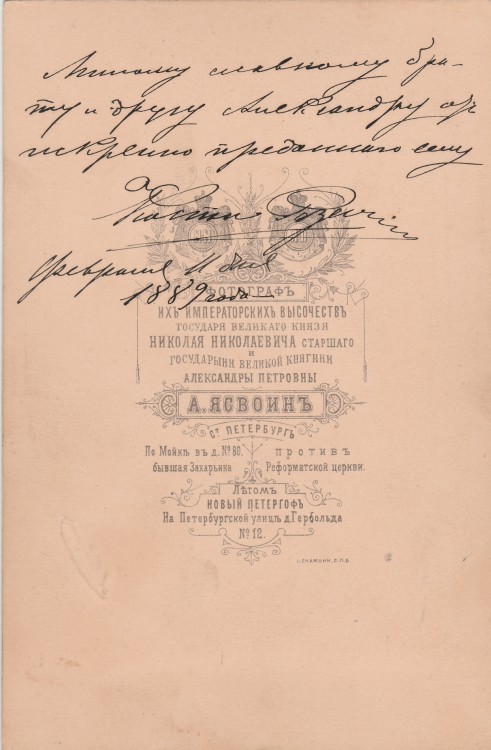 Милому славному бра-
ту и другу Александру отъ
искренно преданнаго ему
Кости
Февраля 11 дня
1889 года
ФОТОГРАФЪ
ИХЪ ИМПЕРАТОРСКИХЪ ВЫСОЧЕСТВЪ
ГОСУДАРЯ ВЕЛИКАГО КНЯЗЯ
НИКОЛАЯ НИКОЛАЕВИЧА СТАРШАГО
И
ГОСУДАРЫНИ ВЕЛИКОЙ КНЯГИНИ
АЛЕКСАНДРЫ ПЕТРОВНЫ
А. ЯСВОИНЪ
Сᵀ ПЕТЕРБУРГЪ
По Мойкѣ въ д. № 60. противъ
бывшая Захарьина Реформатской церкви.
Лѣтомъ
НОВЫЙ ПЕТЕРГОФЪ
На Петербургской улицѣ д. Гербольда
№ 12.